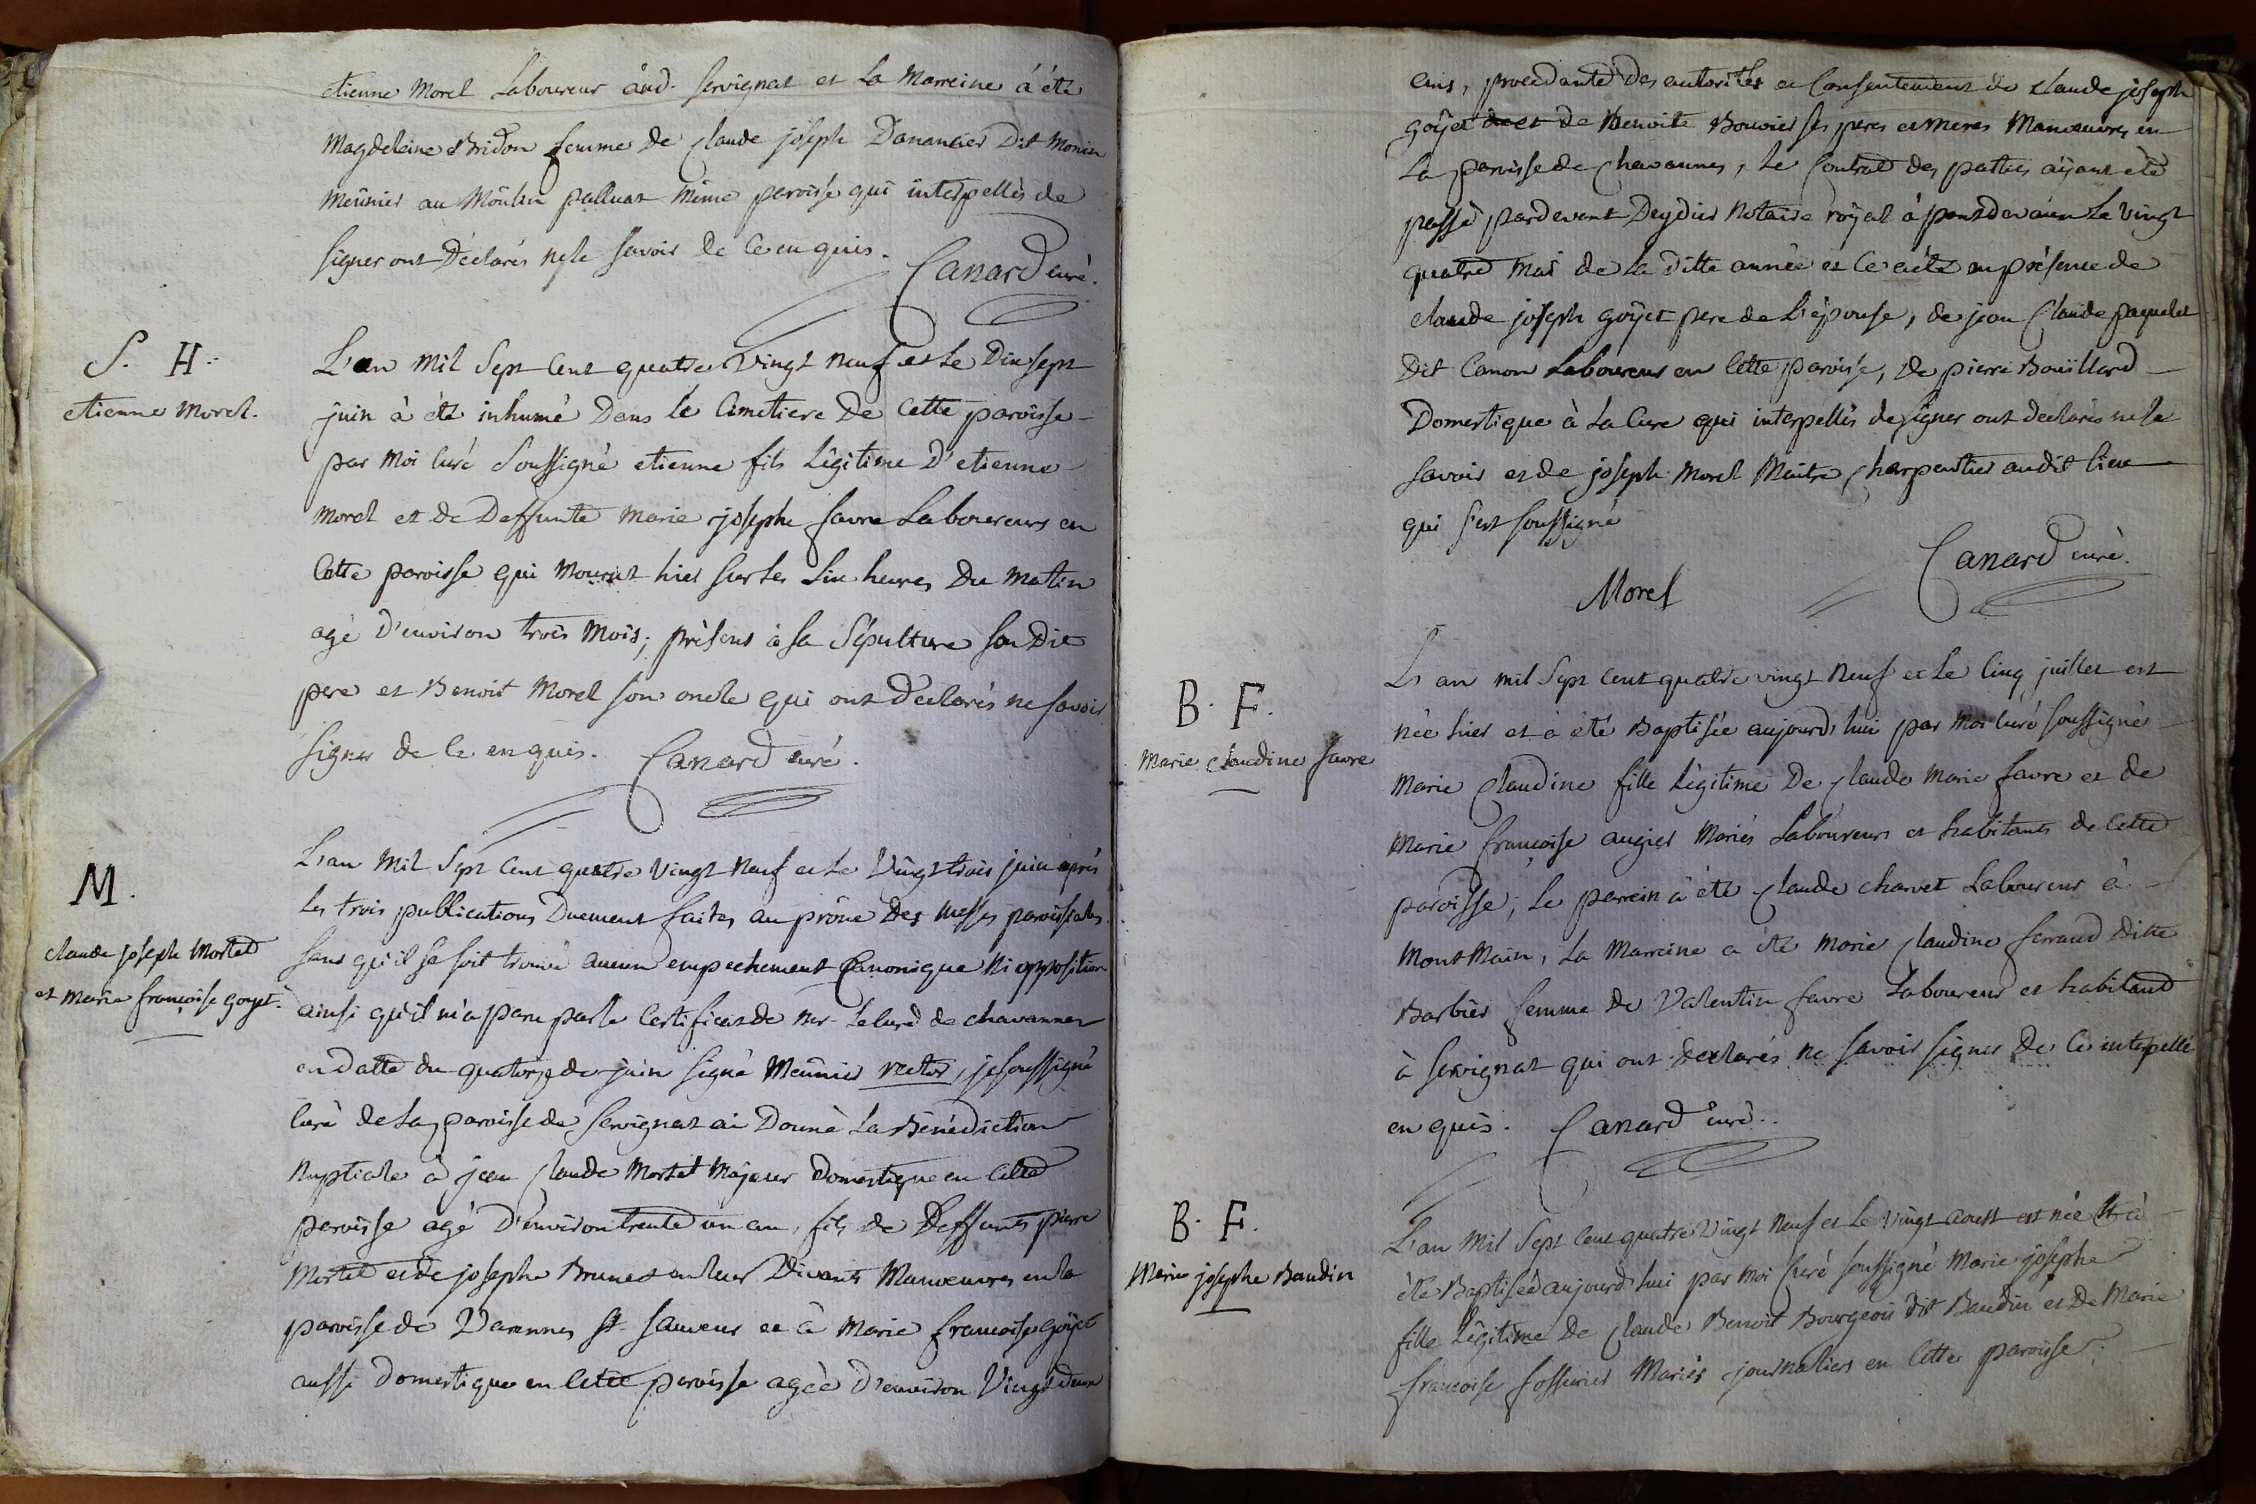 etienne Morel Laboureur aud. Servignat et La Marreine à été
Magdeleine Bridon femme de Claude joseph Dananches Dit Monin
meûnier au Moulin palluat même paroisse qui interpellés de
signer ont Déclarés ne le savoir de ce enquis.
Canard curé.
S. H.
etienne Morel.
L'an mil Sept Cent quatre Vingt neuf et Le Dix sept
juin à été inhumé Dans lé Cimetiere De Cette paroisse
par Moi Curé Soussigné etienne fils Légitime D'etienne
Morel et de Deffunte Marie josephe favre Laboureurs en
Cette paroisse qui Mourut hier sur les Six heures Du Matin
agé D'environ trois Mois; présens à sa Sépulture son Dit
pere et Benoit Morel son oncle qui ont Déclarés ne savoir
signer de Ce enquis. Canard curé.
M.
claude joseph Mortel
et Marie françoise goyet.
L'an Mil Sept Cent quatre Vingt Neuf et Le Vingt trois juin après
Les trois publications Duement faites au prône Des Messes paroissiales
sans qu'il se soit trouvé aucun empechement Canonique Ni opposition
ainsi qu'il m'a paru par le Certificat de Mr. Le Curé de chavannes
en Datte du quatorze de juin signé Meûnier rector, je soussigné
Curé de La paroisse de Servignat ai Donné La Bénédiction
Nuptiale à jean Claude Mortel Majeur Domestique en Cette
paroisse agé D'environ trente un an, fils de Deffunts pierre
Mortel et de josephe Brunet en leur Vivants Manoeuvres en la
paroisse de Varennes St. Sauveur et à Marie françoise goÿet
aussi Domestique en Cette paroisse agée D'environ Vingt deux
ans, procedante Des autorités et Consentement de Claude joseph
Goÿet et de Benoite Bouvier ses peres et meres Manoeuvres en
La paroisse de Chavannes, Le Contrat des parties aÿant été
passé pardevant Deydier Notaire roÿal à pontdevaux Le Vingt
quatre Mai de La Ditte année et Ce acté en présence de
claude joseph goÿet pere de L'épouse, de jean Claude paquelet
Dit Canon Laboureur en Cette paroisse, de pierre Bouillard
Domestique à La Cure qui interpellés de signer ont declarés ne le
savoir et de joseph Morel Maitre Charpentier audit lieu
qui s'est soussigné
Canard curé.
Morel
B. F.
Marie Claudine favre
L'an mil Sept Cent quatre vingt Neuf et Le Cinq juillet est
née hier et à été Baptisée aujourd'hui par Moi Curé soussigné
Marie Claudine fille Légitime De Claude Marie favre et de
Marie françoise augier Mariés Laboureurs et habitants de Cette
paroisse; Le parrein à été Claude charvet Laboureur à
MontMain, La Marreine a été Marie Claudine ferraud Ditte
Barbier femme de Valentin favre Laboureur et habitant
à Servignat qui ont déclarés ne savoir signer De Ce interpellé
enquis. Canard curé.
B. F.
Marie josephe Baudin
L'an Mil Sept Cent quatre Vingt Neuf et Le Vingt aoust est née et à
été Baptisée aujourd'hui par Moi Curé soussigné Marie josephe
fille Légitime De Claude Benoit Bourgeois dit Baudin et De Marie
françoise fossurier Mariés journaliers en Cette paroisse;